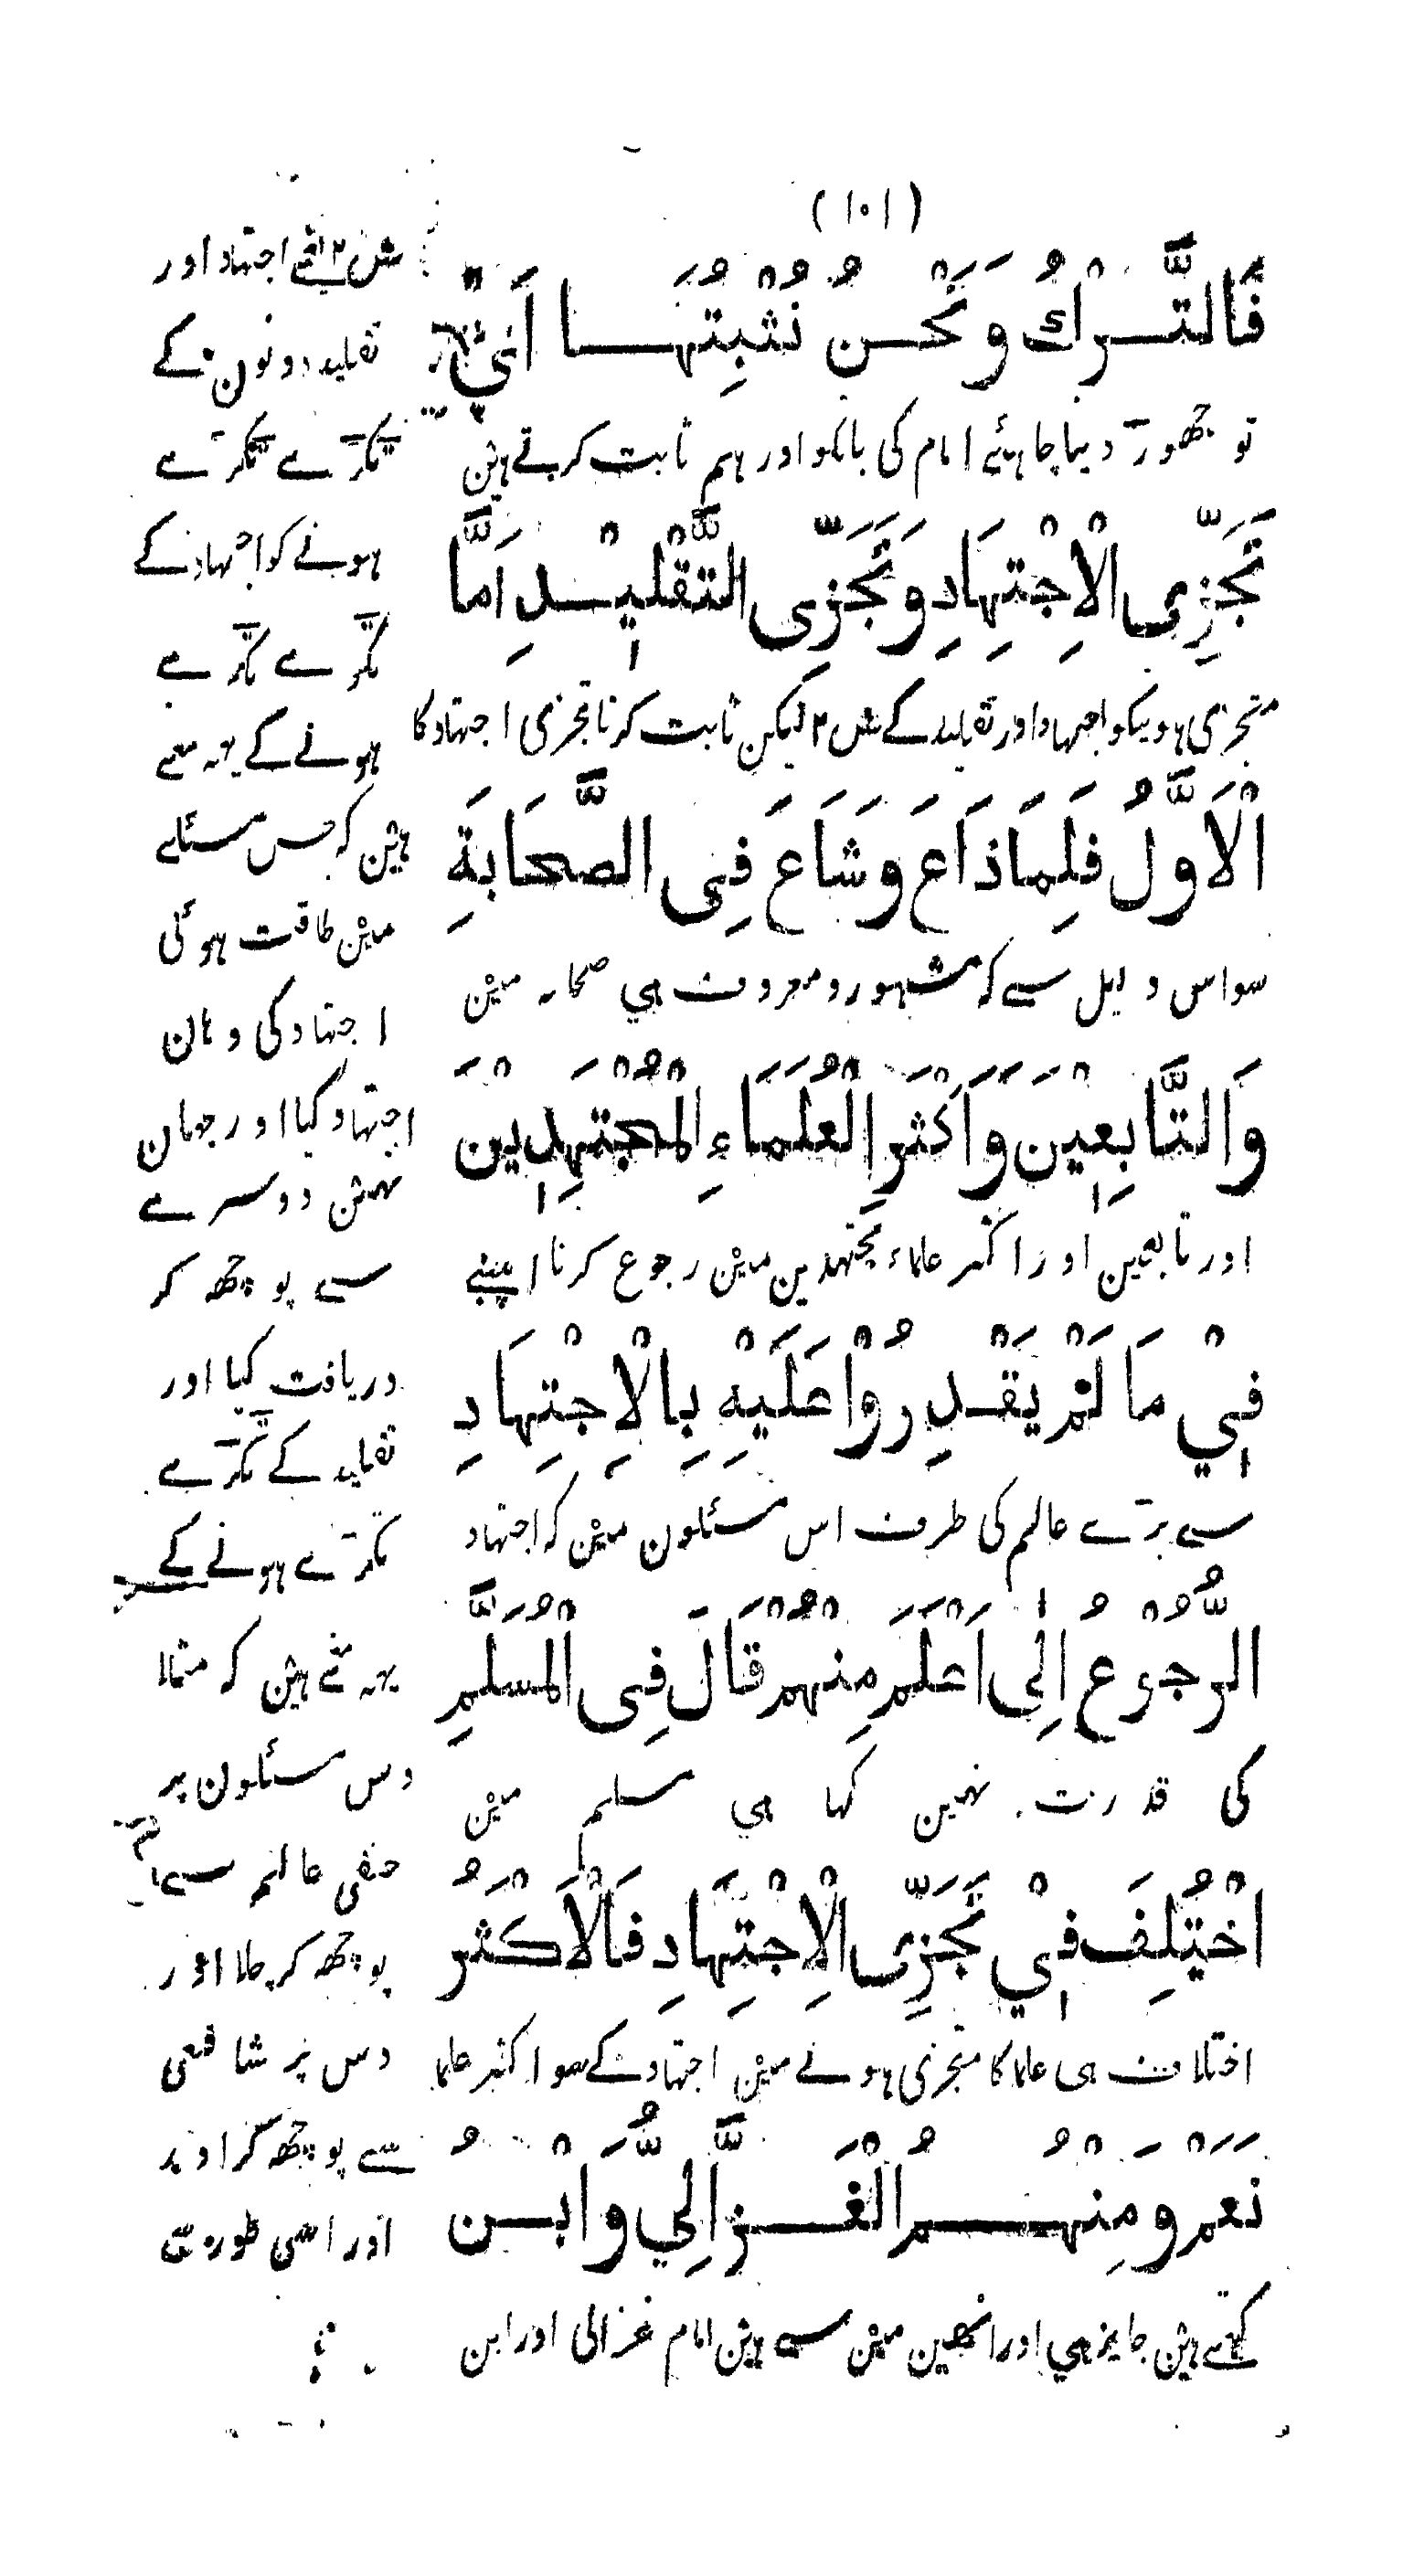 (۱۰۱)
فَالتَّرْكُ وَنَحْنُ نُثْبِتُهَا اَیْ
تو چھوڑ دینا چاہئے امام کی بالکو اور ہم ثابت کرتے ہین
تَجَزِّی الْاِجْتِهَادِ وَتَجَزِّی التَّقْلِیْدِ اَمَّا
متجزی ہونیکو اجتہاد اور تقلید کے ش۲ لیکن ثابت کرنا تجزی اجتہاد کا
الْاَوَّلُ فَلِمَا ذَاعَ وَشَاعَ فِی الصَّحَابَةِ
سو اس دلیل سے کہ مشہور و معروف ہی صحابہ مین
وَالتَّابِعِیْنَ وَاَكْثَرِ الْعُلَمَاءِ الْمُجْتَهِدِیْنَ
اور تابعین اور اکثر علماء مجتہدین مین رجوع کرنا اپنے
فِیْ مَا لَمْ یَقْدِرُوْا عَلَیْهِ بِالْاِجْتِهَادِ
سے بڑے عالم کی طرف اس مسئلون مین کہ اجتہاد
الرُّجُوْعُ اِلٰی اَعْلَمَ مِنْهُمْ قَالَ فِی الْمُسَلَّمِ
کی قدرت نہین کہا ہی مسلم مین
اخْتُلِفَ فِیْ تَجَزِّی الْاِجْتِهَادِ فَالْاَكْثَرُ
اختلاف ہی علما کا متجزی ہونے مین اجتہاد کے سو اکثر علما
نَعَمْ وَمِنْهُمُ الْغَزَّالِیُّ وَابْنُ
کہتے ہین جایز ہی اور انھین مین سے ہین امام غزالی اور ابن
ش۲ یعنے اجتہاد اور
تقلید دونون کے
ٹکڑے ٹکڑے
ہونے کو اجتہاد کے
ٹکڑے ٹکڑے
ہونے کے یہہ معنے
ہین کہ جس مسئلے
مین طاقت ہوئی
اجتہاد کی وہان
اجتہاد کیا اور جہان
نہین دوسرے
سے پوچھ کر
دریافت کیا اور
تقلید کے ٹکڑے
ٹکڑے ہونے کے
یہہ معنے ہین کہ مثلا
دس مسئلون پر
حنفی عالم سے
پوچھ کر چلا اور
دس پر شافعی
سے پوچھ کر
اور اسی طور سے